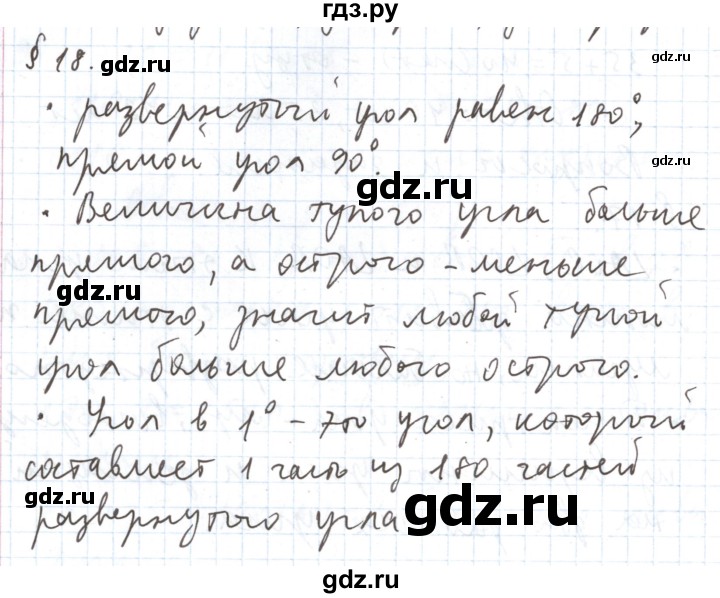 гдз.ру
§ 18.
gdz.ru
gdz.ru
• развернутый угол равен 180°,
прямой угол 90°.
gdz.ru
gdz.ru
• Величина тупого угла больше
прямого, а острого - меньше
gdz.ru
прямого, значит любой тупой
угол больше любого острого.
• Угол в 1° - это угол, который
составляет 1 часть из 180 частей
gdz.ru
развернутого угла
gdz.ru
gdz.ru